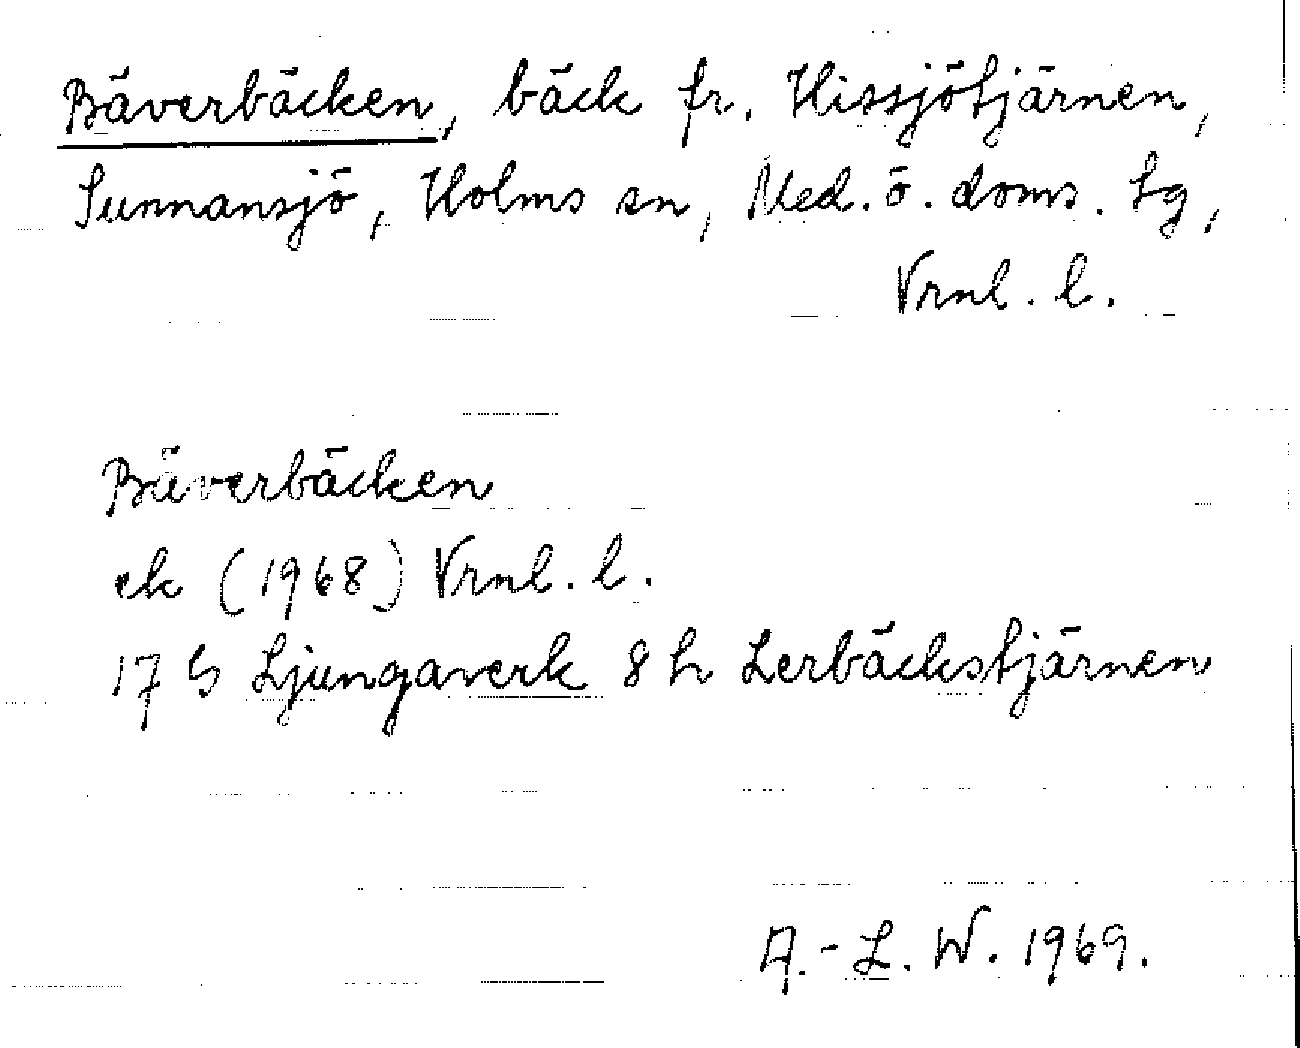 Bäverbäcken, bäck fr. Hissjötjärnen,
Sunnansjö, Holms sn, Med. ö. doms. tg,
Vrnl. l.
Bäverbäcken
ek (1968) Vrnl. l.
17 G Ljungaverk 8 h Lerbäckstjärnen
A.-L. W. 1969.